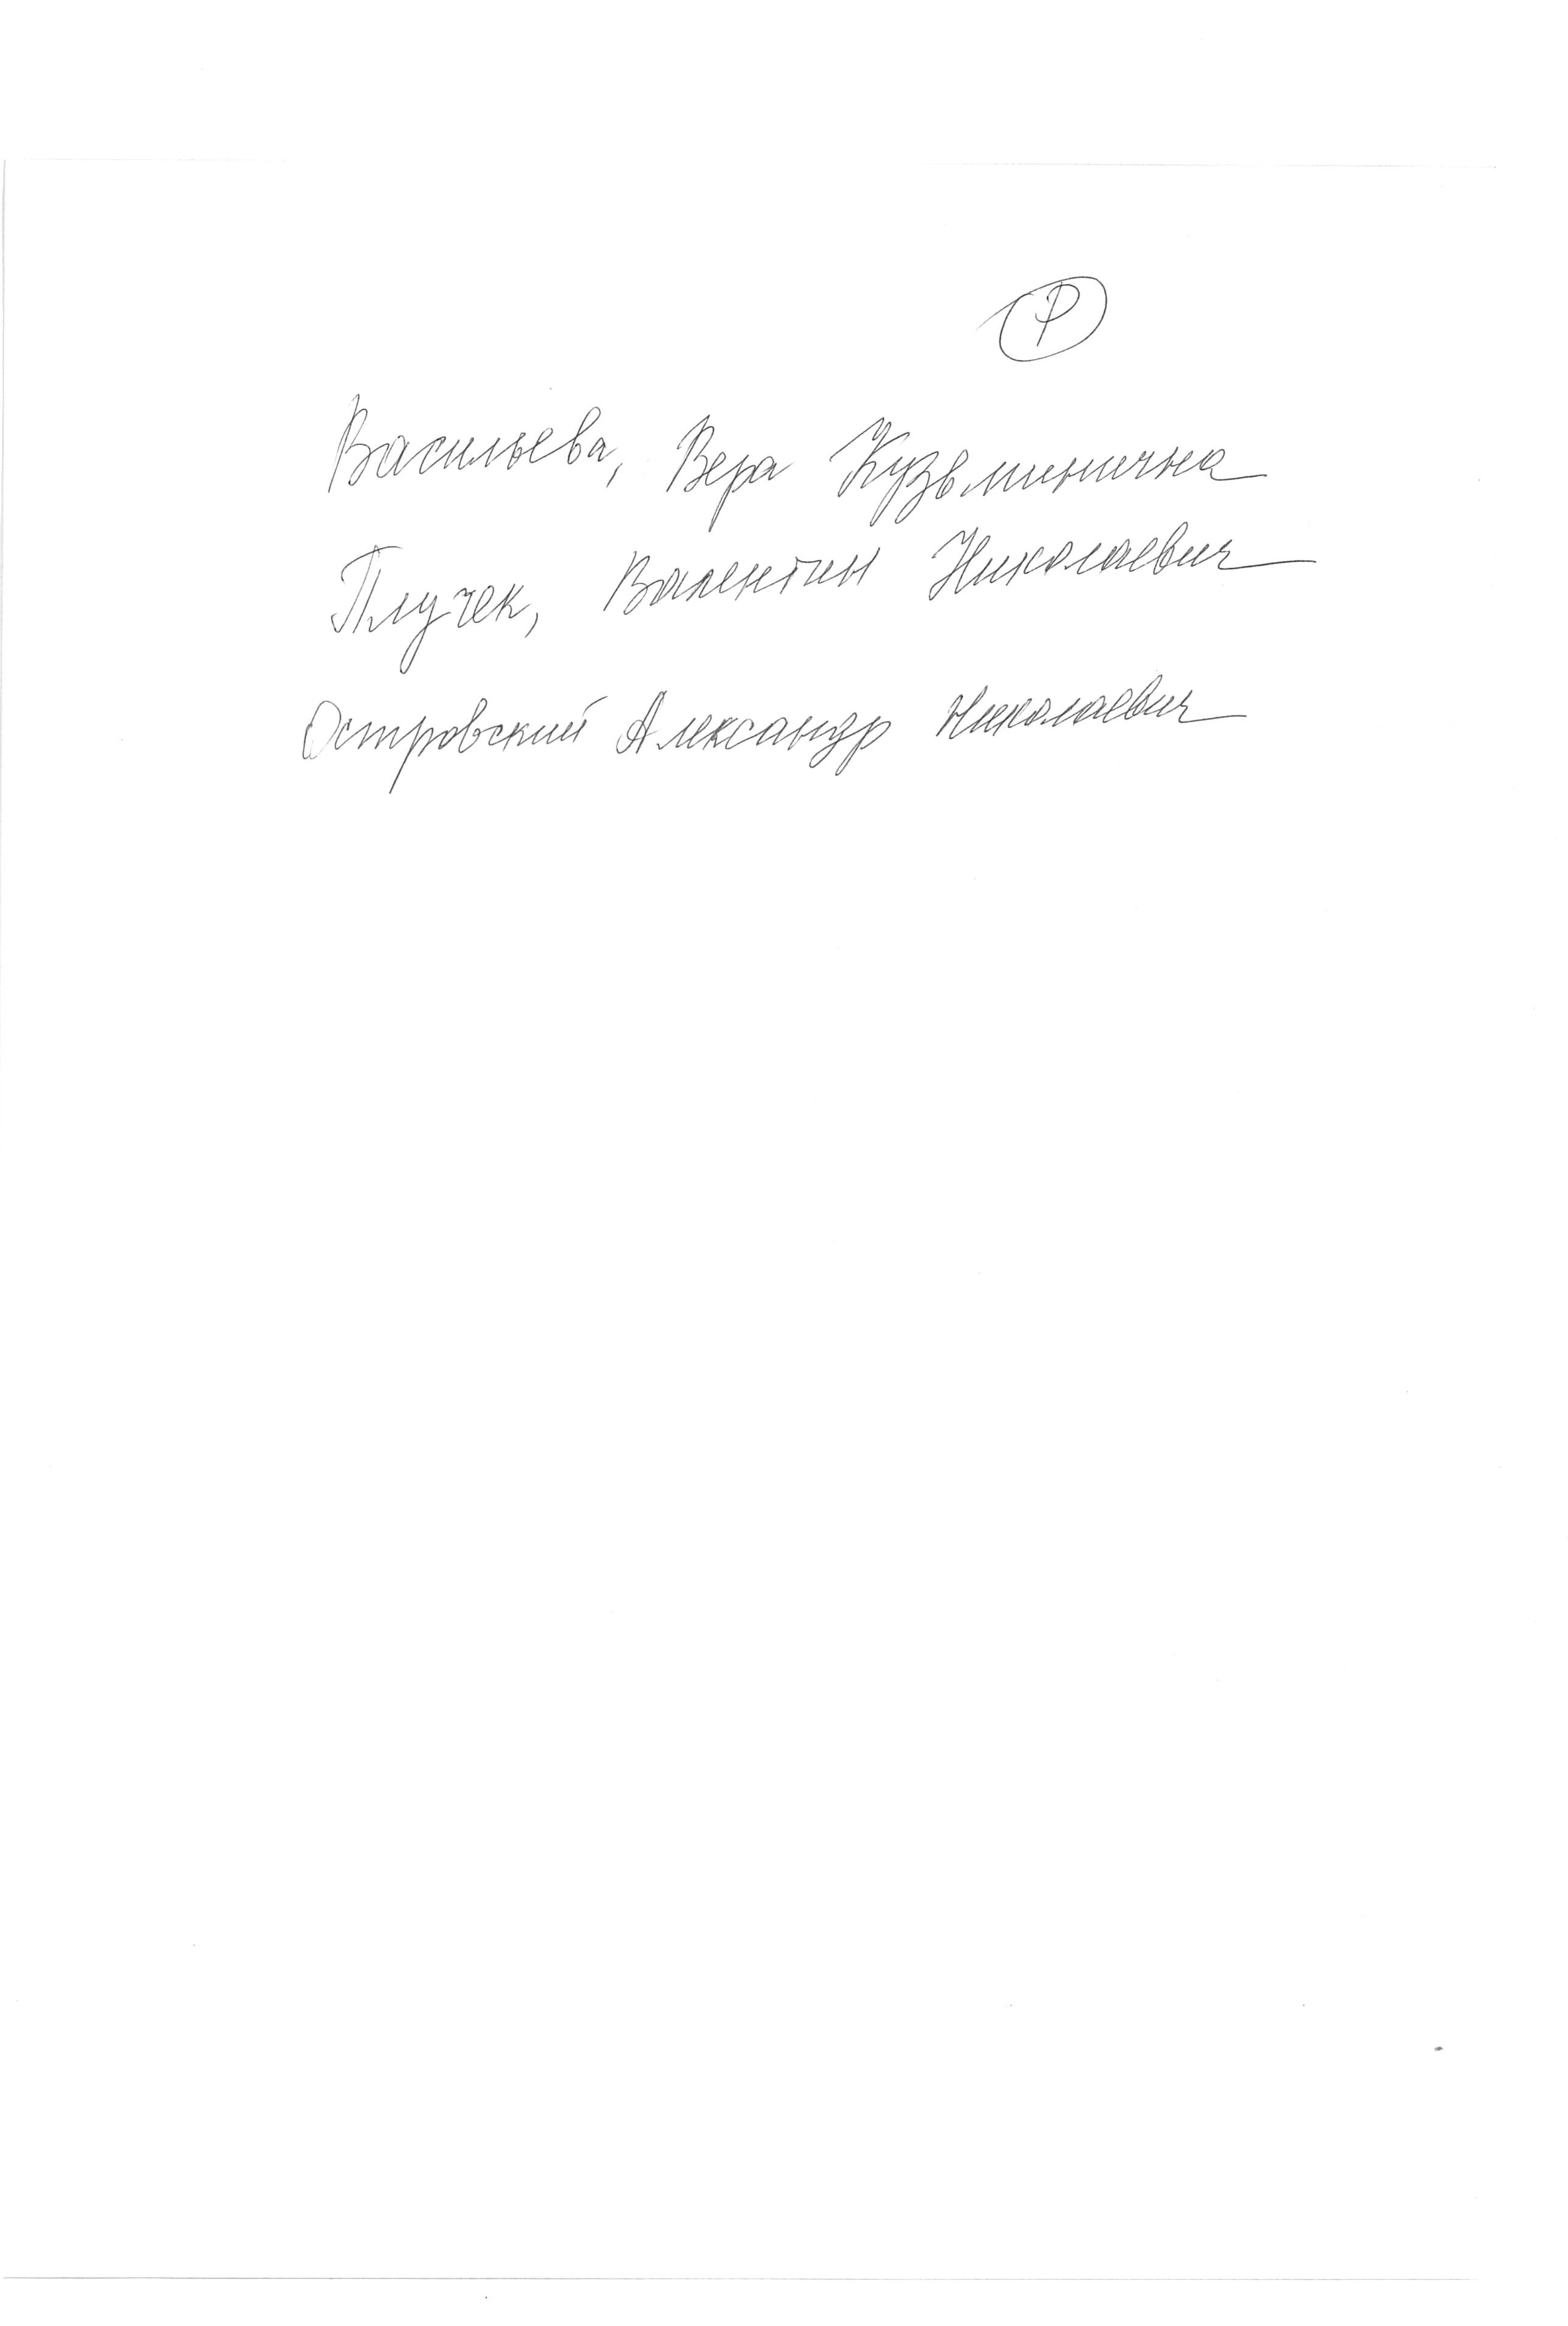 Р
Васильева, Вера Кузьминична
Плучек, Валентин Николаевич
Островский Александр Николаевич